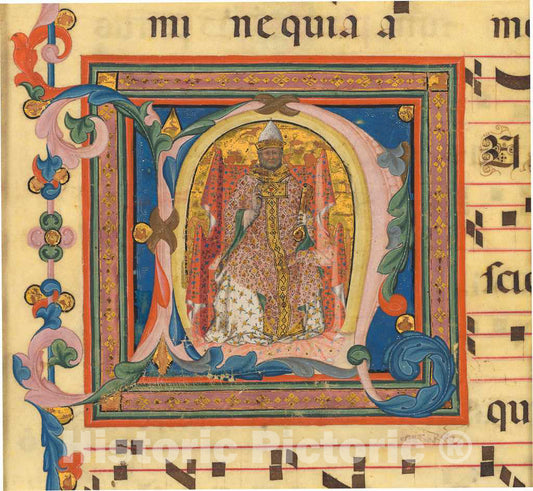 mi ne quia a
sci
qu
Historic Pictoric ®